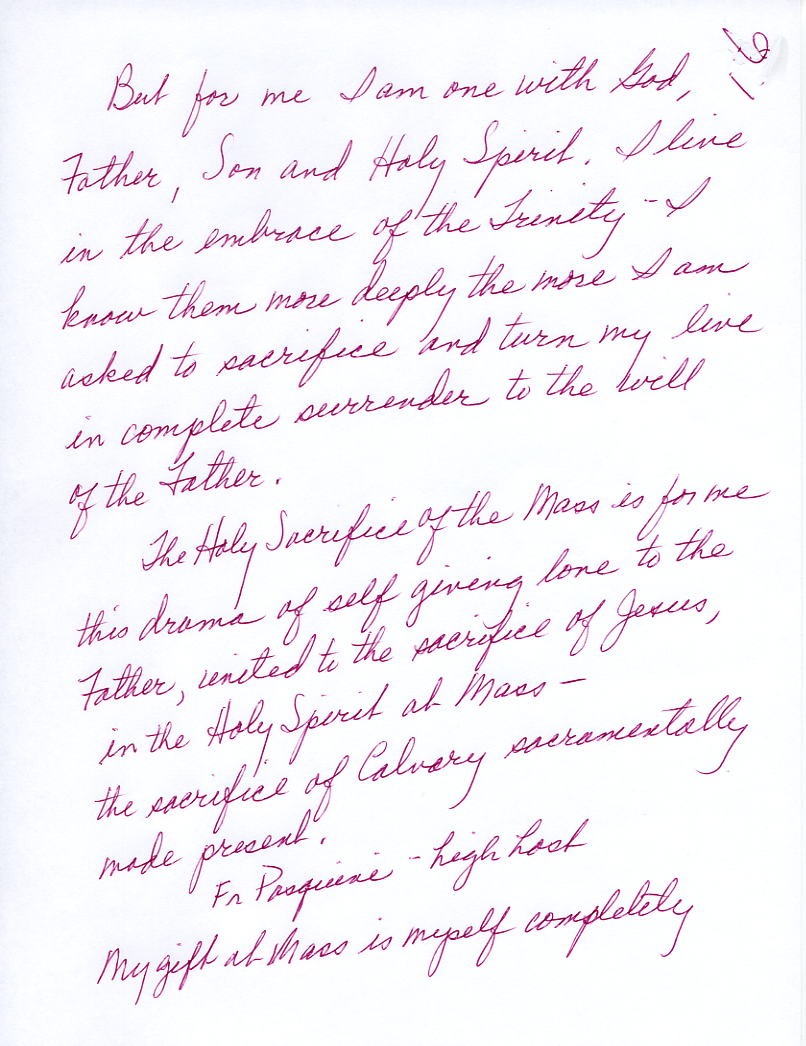 But for me I am one with God,
Father, Son and Holy Spirit. I live
in the embrace of the Trinity - I
know them more deeply the more I am
asked to sacrifice and turn my live
in complete surrender to the will
of the Father.
The Holy Sacrifice of the Mass is for me
this drama of self giving love to the
Father, united to the sacrifice of Jesus,
in the Holy Spirit at Mass -
the sacrifice of Calvary sacramentally
made present.
Fr Pasquini - high host
My gift at Mass is myself completely